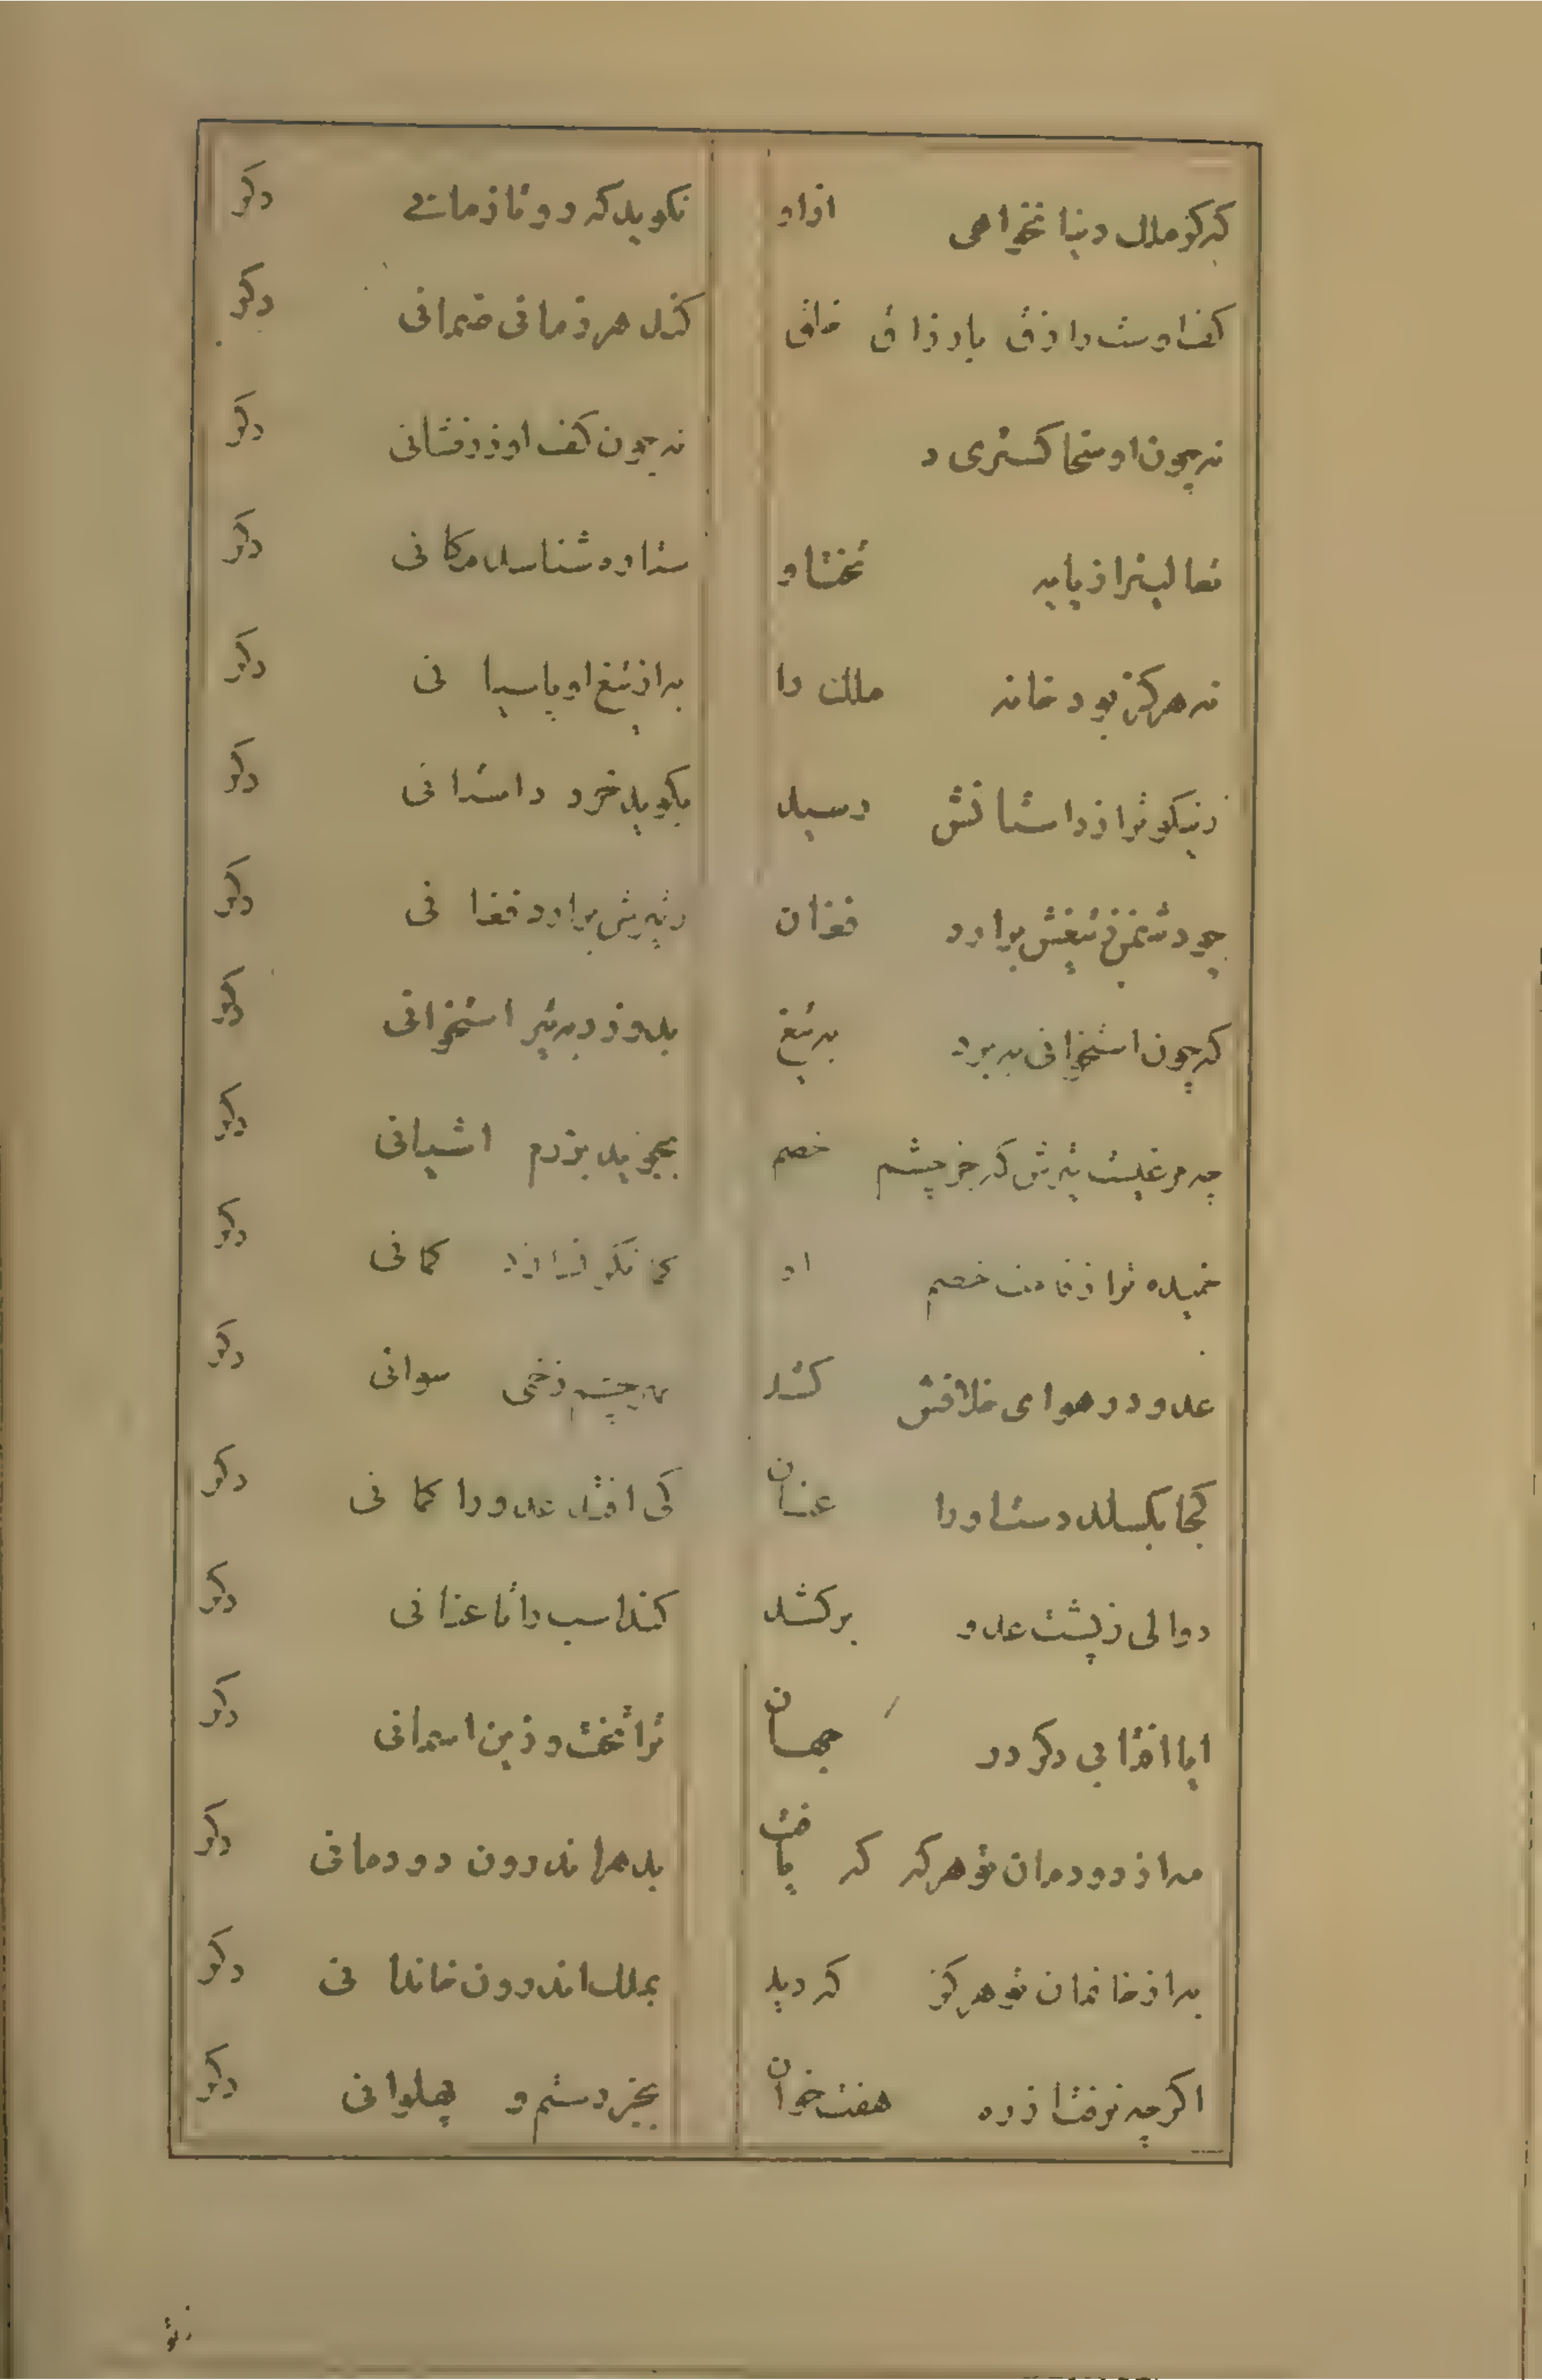 که گر گو ملک دنیا نخواهی ازاو نگوید که رو تا زمانے دکر
کف اوست رازق بارزاق خلق کند هر زمانی ضمانی دکر
نه چون او سخا کستری د نه چون کف او زرفشانی دکر
تعالیتر از پایه تختاو ستاره شناسد مکانی دکر
نه هرگز بود خانه ملک را به از تیغ او پاسبانی دکر
زنیکوتر از داستانش رسید بگوید خرد داستانی دکر
چو دشمن ز تیغش برآرد فغان ز تیرش برآرد فغانی دکر
که چون استخوانی ببرد به تیغ بدوزد به تیر استخوانی دکر
چه مرغیست تیرش که جز چشم خصم بجوید برزم اشیانی دکر
خمیده تر از قامت خصم او کمانی دکر
عدو در هوای خلافش کشد به چشم زخمی سوانی دکر
کجا بگسلد دست او را عنان کی افتد عدو را کمانی دکر
دوالی ز پشت عدو برکشد کند اسب را تا عنانی دکر
ایا افتابی دکر در جهان ترا تخت و زین اسمانی دکر
به از دودمان تو هرکه که یافت بدهر اندرون دودمانی دکر
به از خانمان تو هرکز که دید بملک اندرون خاندانی دکر
اکرچه نرفت از ره هفتخوان بجز رستم و پهلوانی دکر
زتو